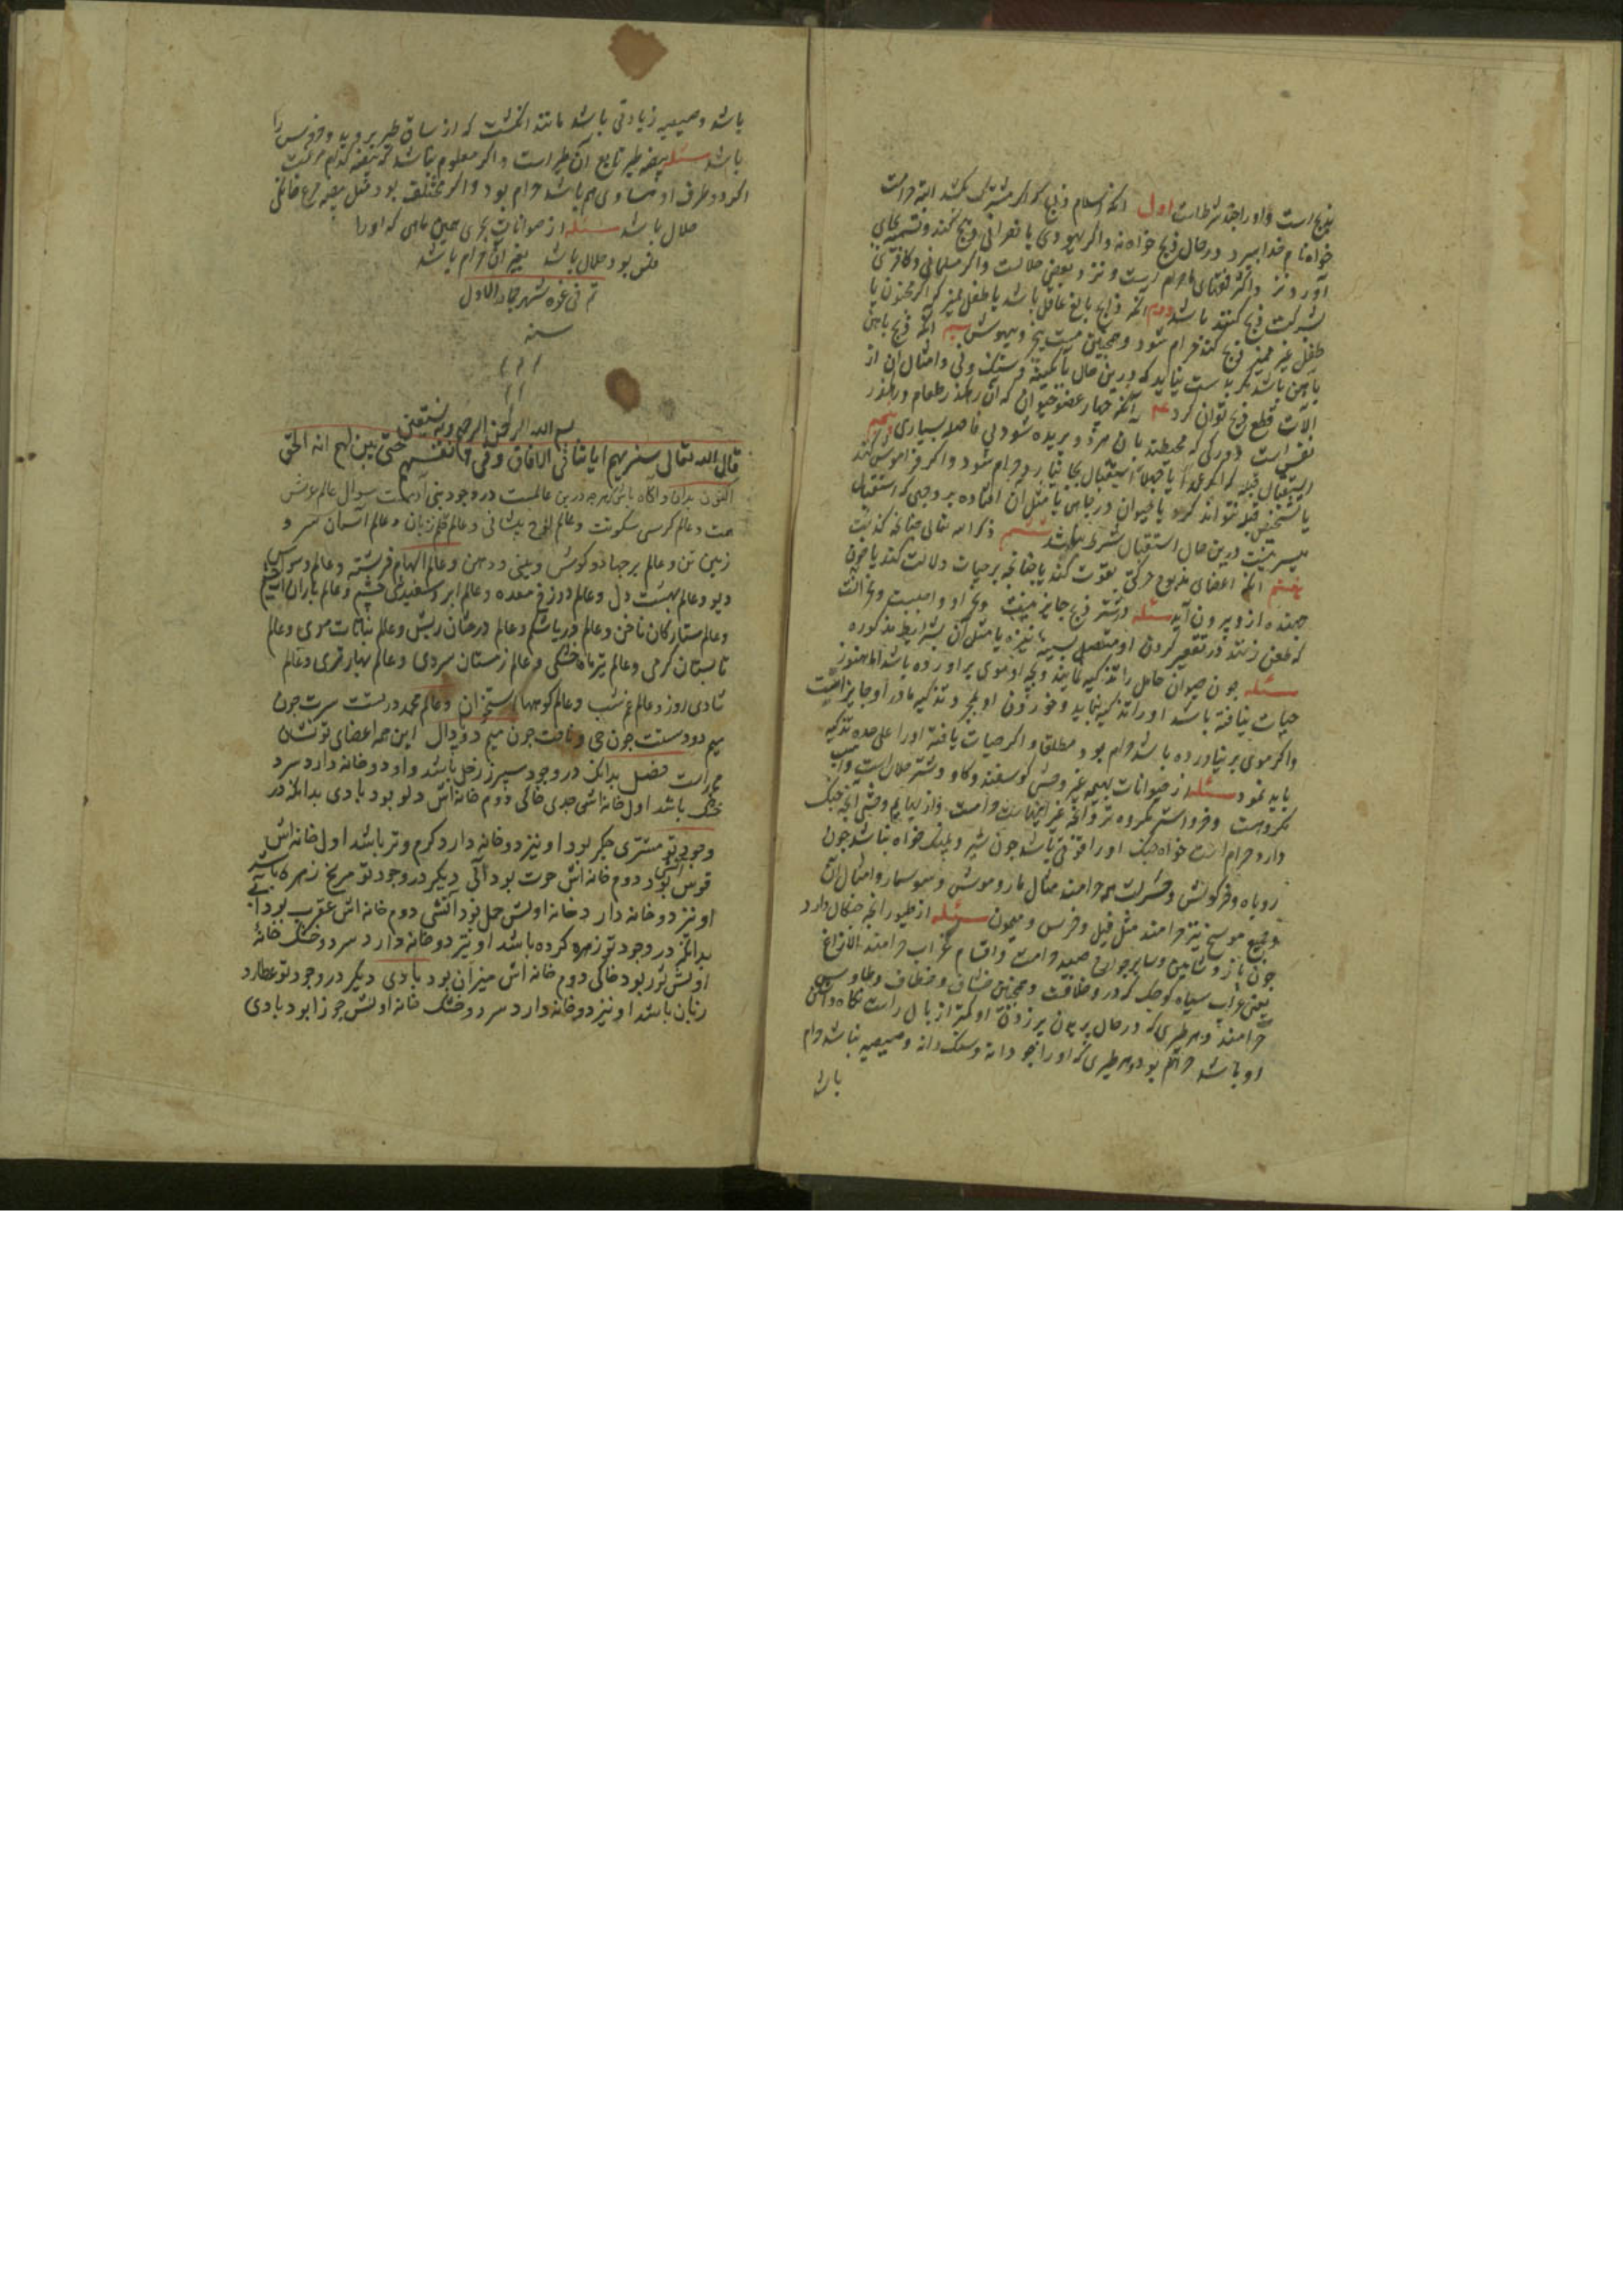 بذبح است و او را چند شرطست اول آنکه اسلام ذابح که اگر مشرک بکشد البته حرامست
خواه نام خدا ببرد در حال ذبح خواه نه و اگر یهودی یا نصرانی ذبح کند و تسمیه بجای
آورد نزد اکثر فقهای حرام است و نزد بعضی حلالست و اگر مسلمانی و کافری
بشرکت ذبح کنند باشد دوم آنکه ذابح بالغ عاقل باشد یا طفل ممیز که اگر مجنون یا
طفل غیر ممیز ذبح کند حرام شود و همچنین مست و بیهوش سیم آنکه ذبح باهن
باهن باشد مگر بدست نیاید که درین حال بآبکینه و سنک و نی و امثال آن از
آلات قطع ذبح توان کرد آنکه چهار عضو حیوان که آن رهگذر طعام و رهگذر
نفس است و دو رکی که محیطند بآن هر دو بریده شود بی فاصله بسیاری پنجم
استقبال قبله که اگر عمدا یا جهلا استقبال بجا نیارد حرام شود و اگر فراموش کند
یا تشخیص قبله نتواند کرد یا حیوان در چاهی یا مثل آن افتاده بر وجهی که استقبال
میسر نیست درین حال استقبال شرط نباشد ششم ذکر الله تعالی چنانچه گذشت
هفتم آنکه اعضای مذبوح حرکتی بقوت کند چنانچه بر حیات دلالت کند یا خون
جهنده از و بیرون آید مسئله در شتر ذبح جایز نیست و نحر او واجبست و نحر آنست
که طعن زنند در کردن او متصل بسینه نیزه یا مثل آن بشرایط مذکوره
مسئله چون حیوان حامل را تذکیه نمایند و بچه او موی بر آورده باشد اما هنوز
حیات نیافته باشد او را تذکیه نباید و خوردن او بمجرد تذکیه مادر او جایز است
و اگر موی بر نیاورده باشد حرام بود مطلقا و اگر حیات یافته او را علی حده تذکیه
باید نمود مسئله از حیوانات بهیمه غیر وحشی کوسفند و کاو و شتر حلال است و اسب
مکروهست و خر و استر مکروه تر و آنچه غیر اینهاست حرامست و از بهایم وحشی آنچه چنک
دارد حرام است خواه چنک او را قوتی باشد چون شیر و پلنک خواه نباشد چون
روباه و خرکوش و حشرات همه حرامند مثال مار و موش و سوسمار و امثال آن
و جمیع مسوخ نیز حرامند مثل فیل و خرس و میمون مسئله از طیور آنچه چنکال دارد
چون باز و شاهین و سایر جوارح صید حرامست و اقسام غراب حرامند الا زاغ
یعنی غراب سیاه کوچک و همچنین خشاف و خطاف و طاوس
حرامند و هر طیری که در حال پریدن پر زدن او کمتر از بال راست نکاه داشتن
او باشد حرام بود و هر طیری که او را چو دانه و سنک دانه و صیصیه نباشد حرام
باشد
باشد و صیصیه زیادتی باشد مانند انکشت که از ساق طیر بروید و خروس را
باشد مسئله بیضه طیر تابع آن طیر است و اگر معلوم نباشد که بیضه کدام مرغست
اگر دو طرف او مساوی هم باشد حرام بود و اگر مختلف بود مثل بیضه مرغ خانکی
حلال باشد مسئله از حیوانات بحری همین ماهی که او را
فلس بود حلال باشد و غیر آن حرام باشد
تم فی غره شهر جماد الاول
سنه
بسم الله الرحمن الرحیم و به نستعین
قال الله تعالی سنریهم ایاتنا فی الافاق و فی انفسهم حتی یتبین لهم انه الحق
اکنون بدان و اکاه باش که هر چه درین عالمست در وجود بنی آدم هست سوال عالم عرش
هست و عالم کرسی سکونت و عالم لوح پیشانی و عالم قلم زبان و عالم آسمان سر و
زمین تن و عالم برجها دو کوش و بینی و دهن و عالم الهام فرشته و عالم وسوس
دیو و عالم بهشت دل و عالم دوزخ معده و عالم ابر و سفیدی چشم و عالم باران
و عالم ستارکان ناخن و عالم دریا شکم و عالم درختان ریش و عالم نباتات موی و عالم
تابستان کرمی و عالم تیرماه خشکی و عالم زمستان سردی و عالم بهار تری و عالم
شادی روز و عالم غم شب و عالم کوهها استخوان و عالم محمد در تست سرت چون
میم دو دستت چون حی و نافت چون میم دو پا دال این همه اعضای تو نشان
محمد است فصل بدانک در وجود سپرز زحل باشد و او دو خانه دارد سرد
خشک باشد اول خانه اش جدی خاکی دوم خانه اش دلو بود بادی بدانکه در
وجود تو مشتری جکر بود او نیز دو خانه دارد کرم و تر باشد اول خانه اش
قوس بود آتشی دوم خانه اش حوت بود آبی دیکر در وجود تو مریخ زهره باشد
او نیز دو خانه دارد خانه اولش حمل بود آتشی دوم خانه اش عقرب بود آبی
بدانکه در وجود تو زهره کرده باشد او نیز دو خانه دارد سرد و خشک خانهٔ
اولش ثور بود خاکی دوم خانه اش میزان بود بادی دیکر در وجود تو عطارد
زبان باشد او نیز دو خانه دارد سرد و خشک خانه اولش جوزا بود بادی